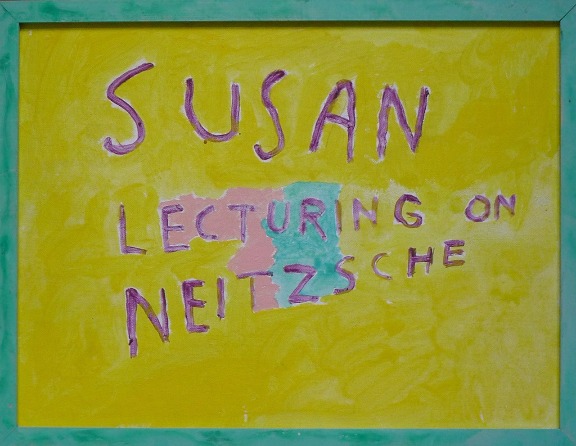 SUSAN
LECTURING ON
NEITZSCHE